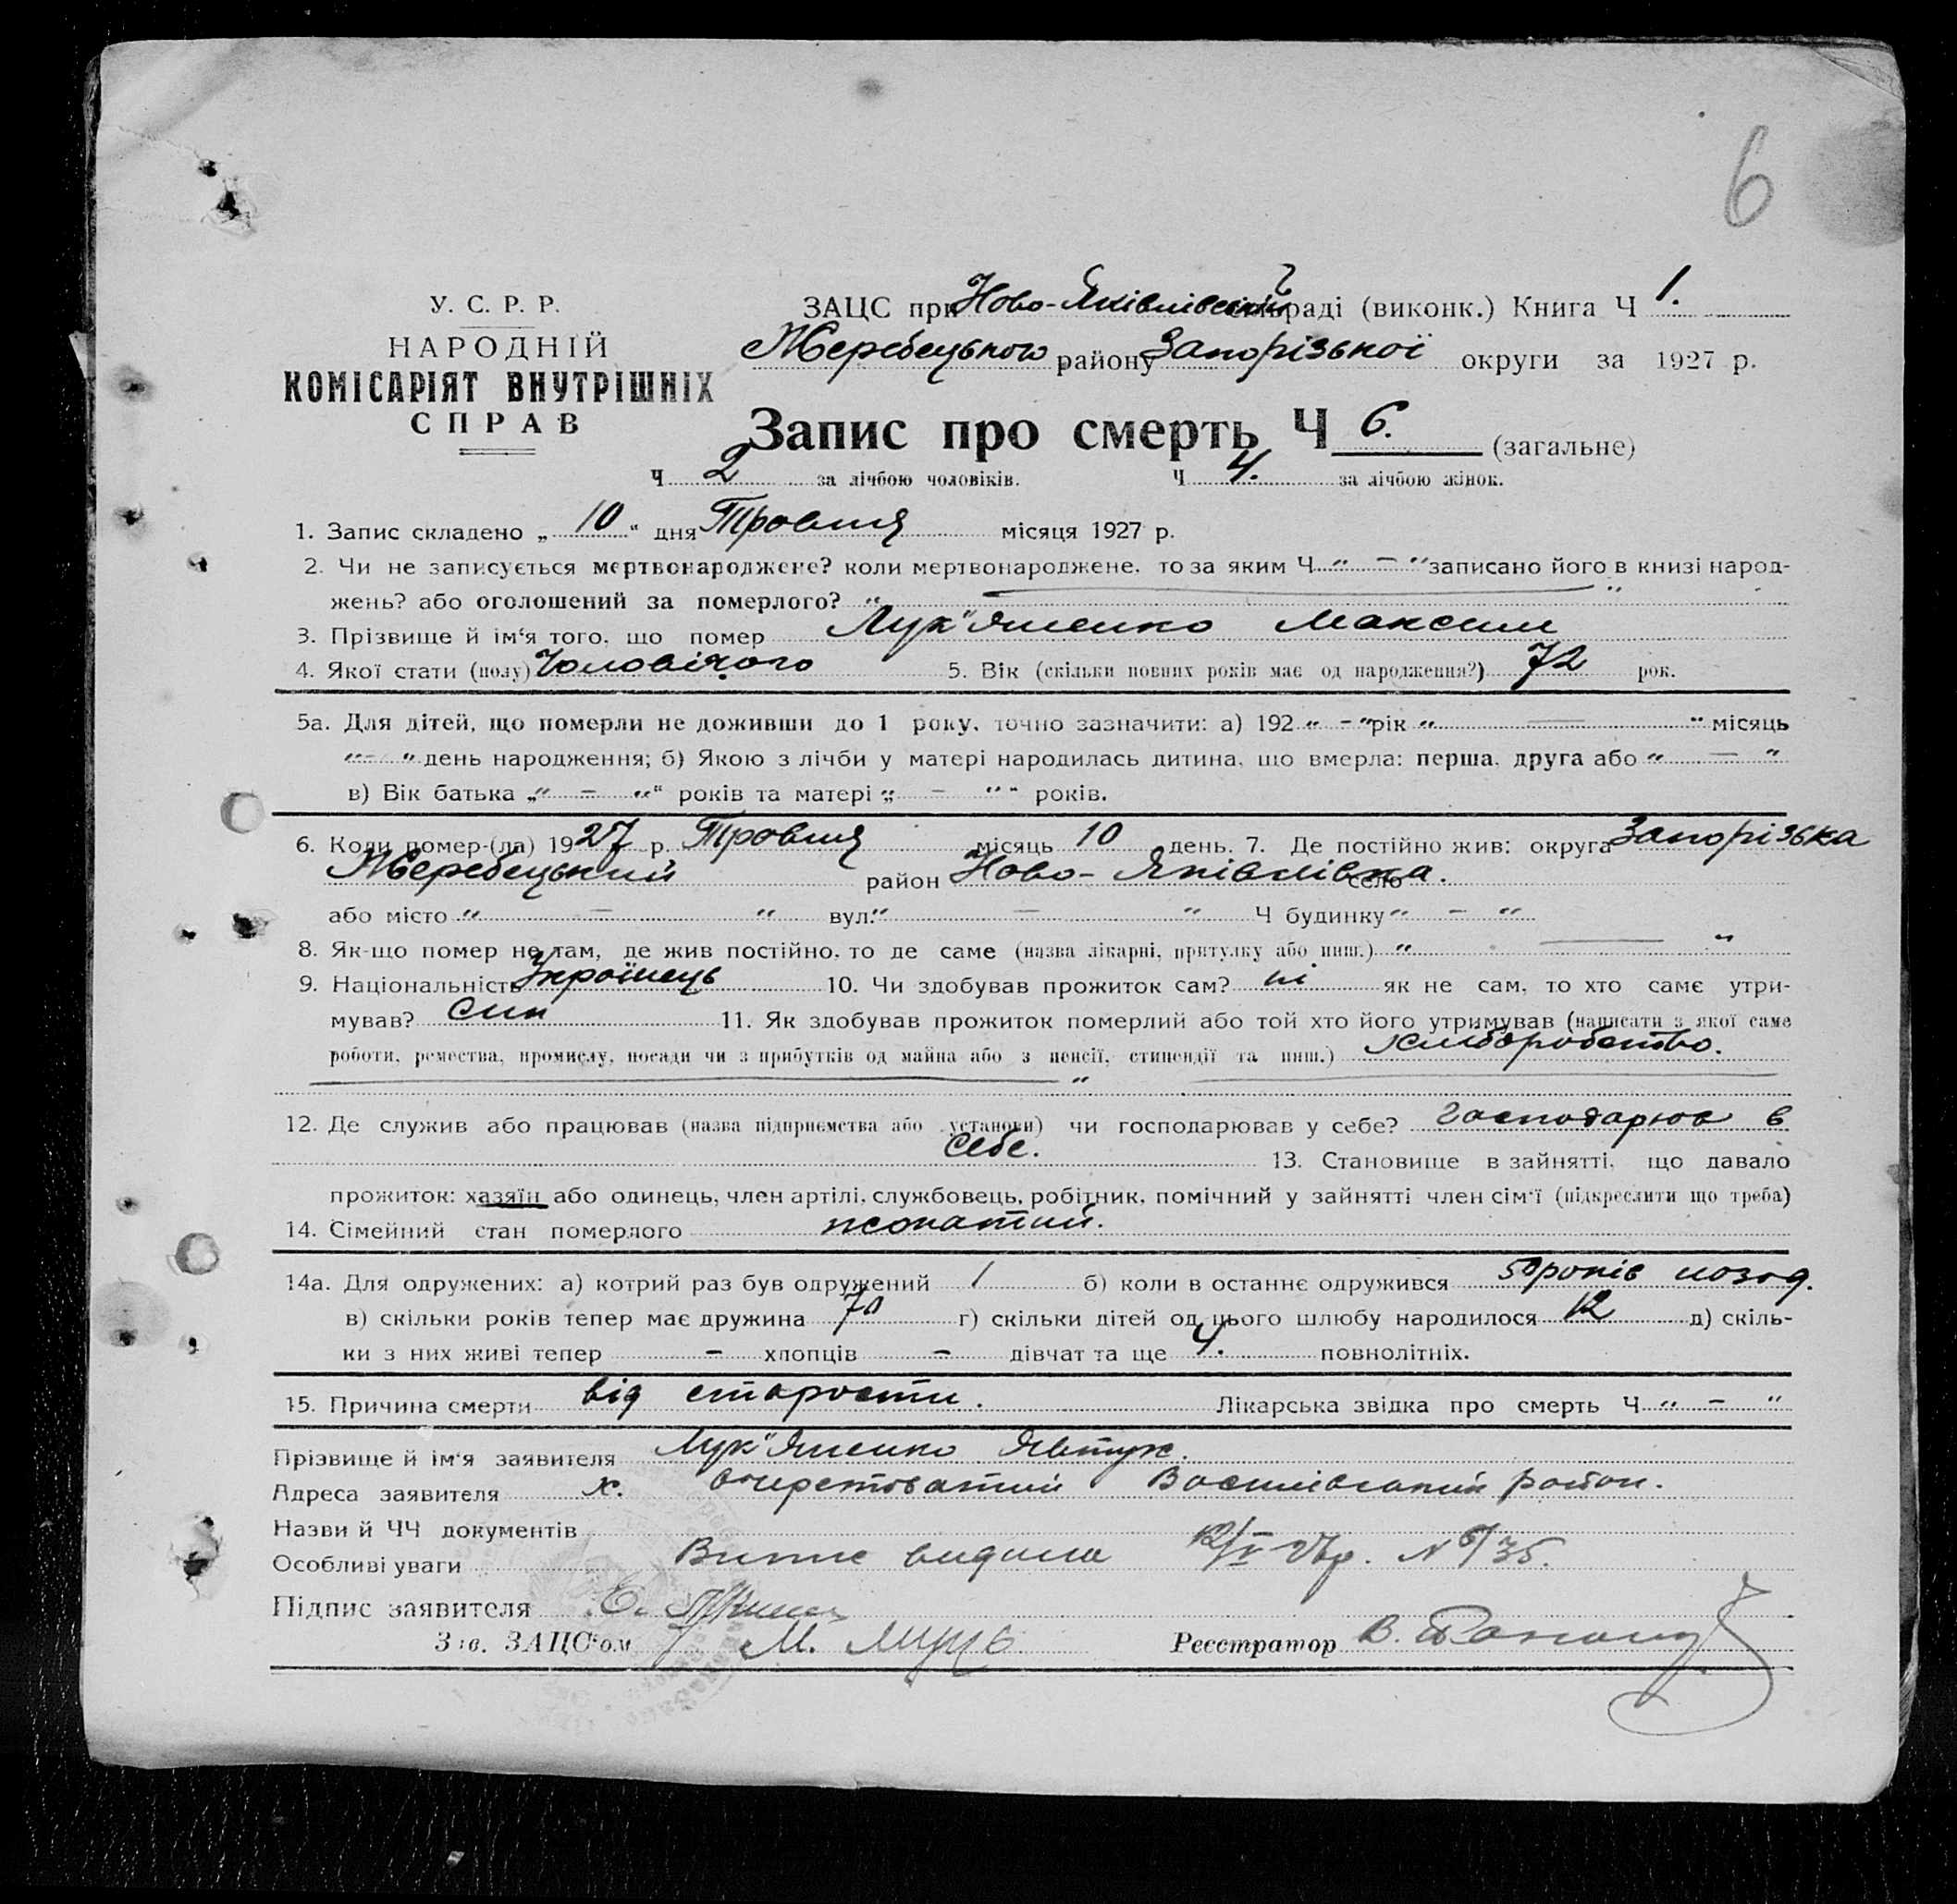 6
У. С. Р. Р.
НАРОДНІЙ
КОМІСАРІЯТ ВНУТРІШНІХ
СПРАВ
ЗАЦС при Ново-Яківлівській раді (виконк.) Книга Ч 1.
Жеребецького району Запорізької округи за 1927 р.
Запис про смерть Ч 6. (загальне)
Ч 2 за лічбою чоловіків. Ч 4. за лічбою жінок.
1. Запис складено „ 10 “ дня Травня місяця 1927 р.
2. Чи не записується мертвонароджене? коли мертвонароджене, то за яким Ч „ – “ записано його в книзі народ-
жень? або оголошений за померлого? „ — “
3. Прізвище й ім‘я того, що помер Лук"яненко Максим
4. Якої стати (полу) Чоловічого 5. Вік (скільки повних років має од народження?) 72 рок.
5а. Для дітей, що померли не доживши до 1 року, точно зазначити: а) 192 „ – “ рік „ — “ місяць
„ – “ день народження; б) Якою з лічби у матері народилась дитина, що вмерла: перша, друга або „ — “
в) Вік батька „ – “ років та матері „ – “ років.
6. Коли помер-(ла) 1927 р. Травня місяць 10 день. 7. Де постійно жив: округа Запорізька
Жеребецький район Ново-Яківлівка. село
або місто „ – “ вул. „ — “ Ч будинку „ – “
8. Як-що помер не там, де жив постійно, то де саме (назва лікарні, притулку або инш.) „ — “
9. Національність Україінець 10. Чи здобував прожиток сам? ні як не сам, то хто саме утри-
мував? син 11. Як здобував прожиток померлий або той хто його утримував (написати з якої саме
роботи, ремества, промислу, посади чи з прибутків од майна або з пенсії, стипендії та инш.) хліборобство.
12. Де служив або працював (назва підприємства або установи) чи господарював у себе? господарював в
себе. 13. Становище в зайнятті, що давало
прожиток: хазяїн або одинець, член артілі, службовець, робітник, помічний у зайнятті член сім‘ї (підкреслити що треба)
14. Сімейний стан померлого жонатий.
14а. Для одружених: а) котрий раз був одружений 1 б) коли в останнє одружився 50 років назад.
в) скільки років тепер має дружина 70 г) скільки дітей од цього шлюбу народилося 12 д) скіль-
ки з них живі тепер – хлопців – дівчат та ще 4. повнолітніх.
15. Причина смерти від старости. Лікарська звідка про смерть Ч „ – “
Прізвище й ім‘я заявителя Лук"яненко Явтух.
Адреса заявителя х. Очеретоватий Василівський район.
Назви й ЧЧ документів
Особливі уваги Випис видана 12/V 27р. N 6/35.
Підпис заявителя
Зав. ЗАЦС‘ом М. Реєстратор В.